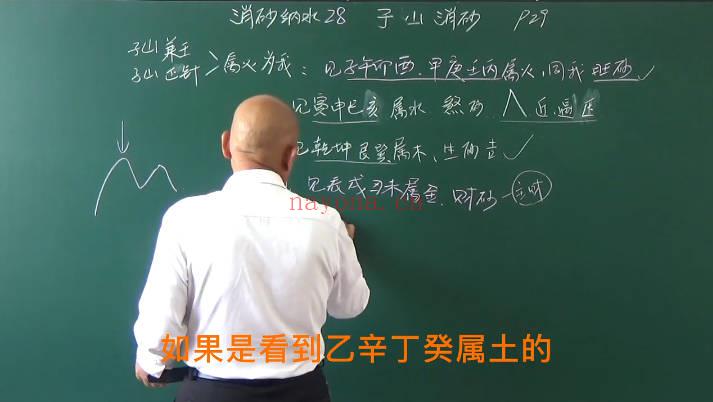 消砂纳水28 子山消砂 P29
子山葬王
子山正针 >属火为我：见子午卯酉.甲庚壬丙属火,同我旺砂✓
寅申巳亥属水 煞砂. 近逼压
乾坤艮巽属木,生砂吉✓
见辰戌丑未属金.财砂
nayona.cn
如果是看到乙辛丁癸属土的